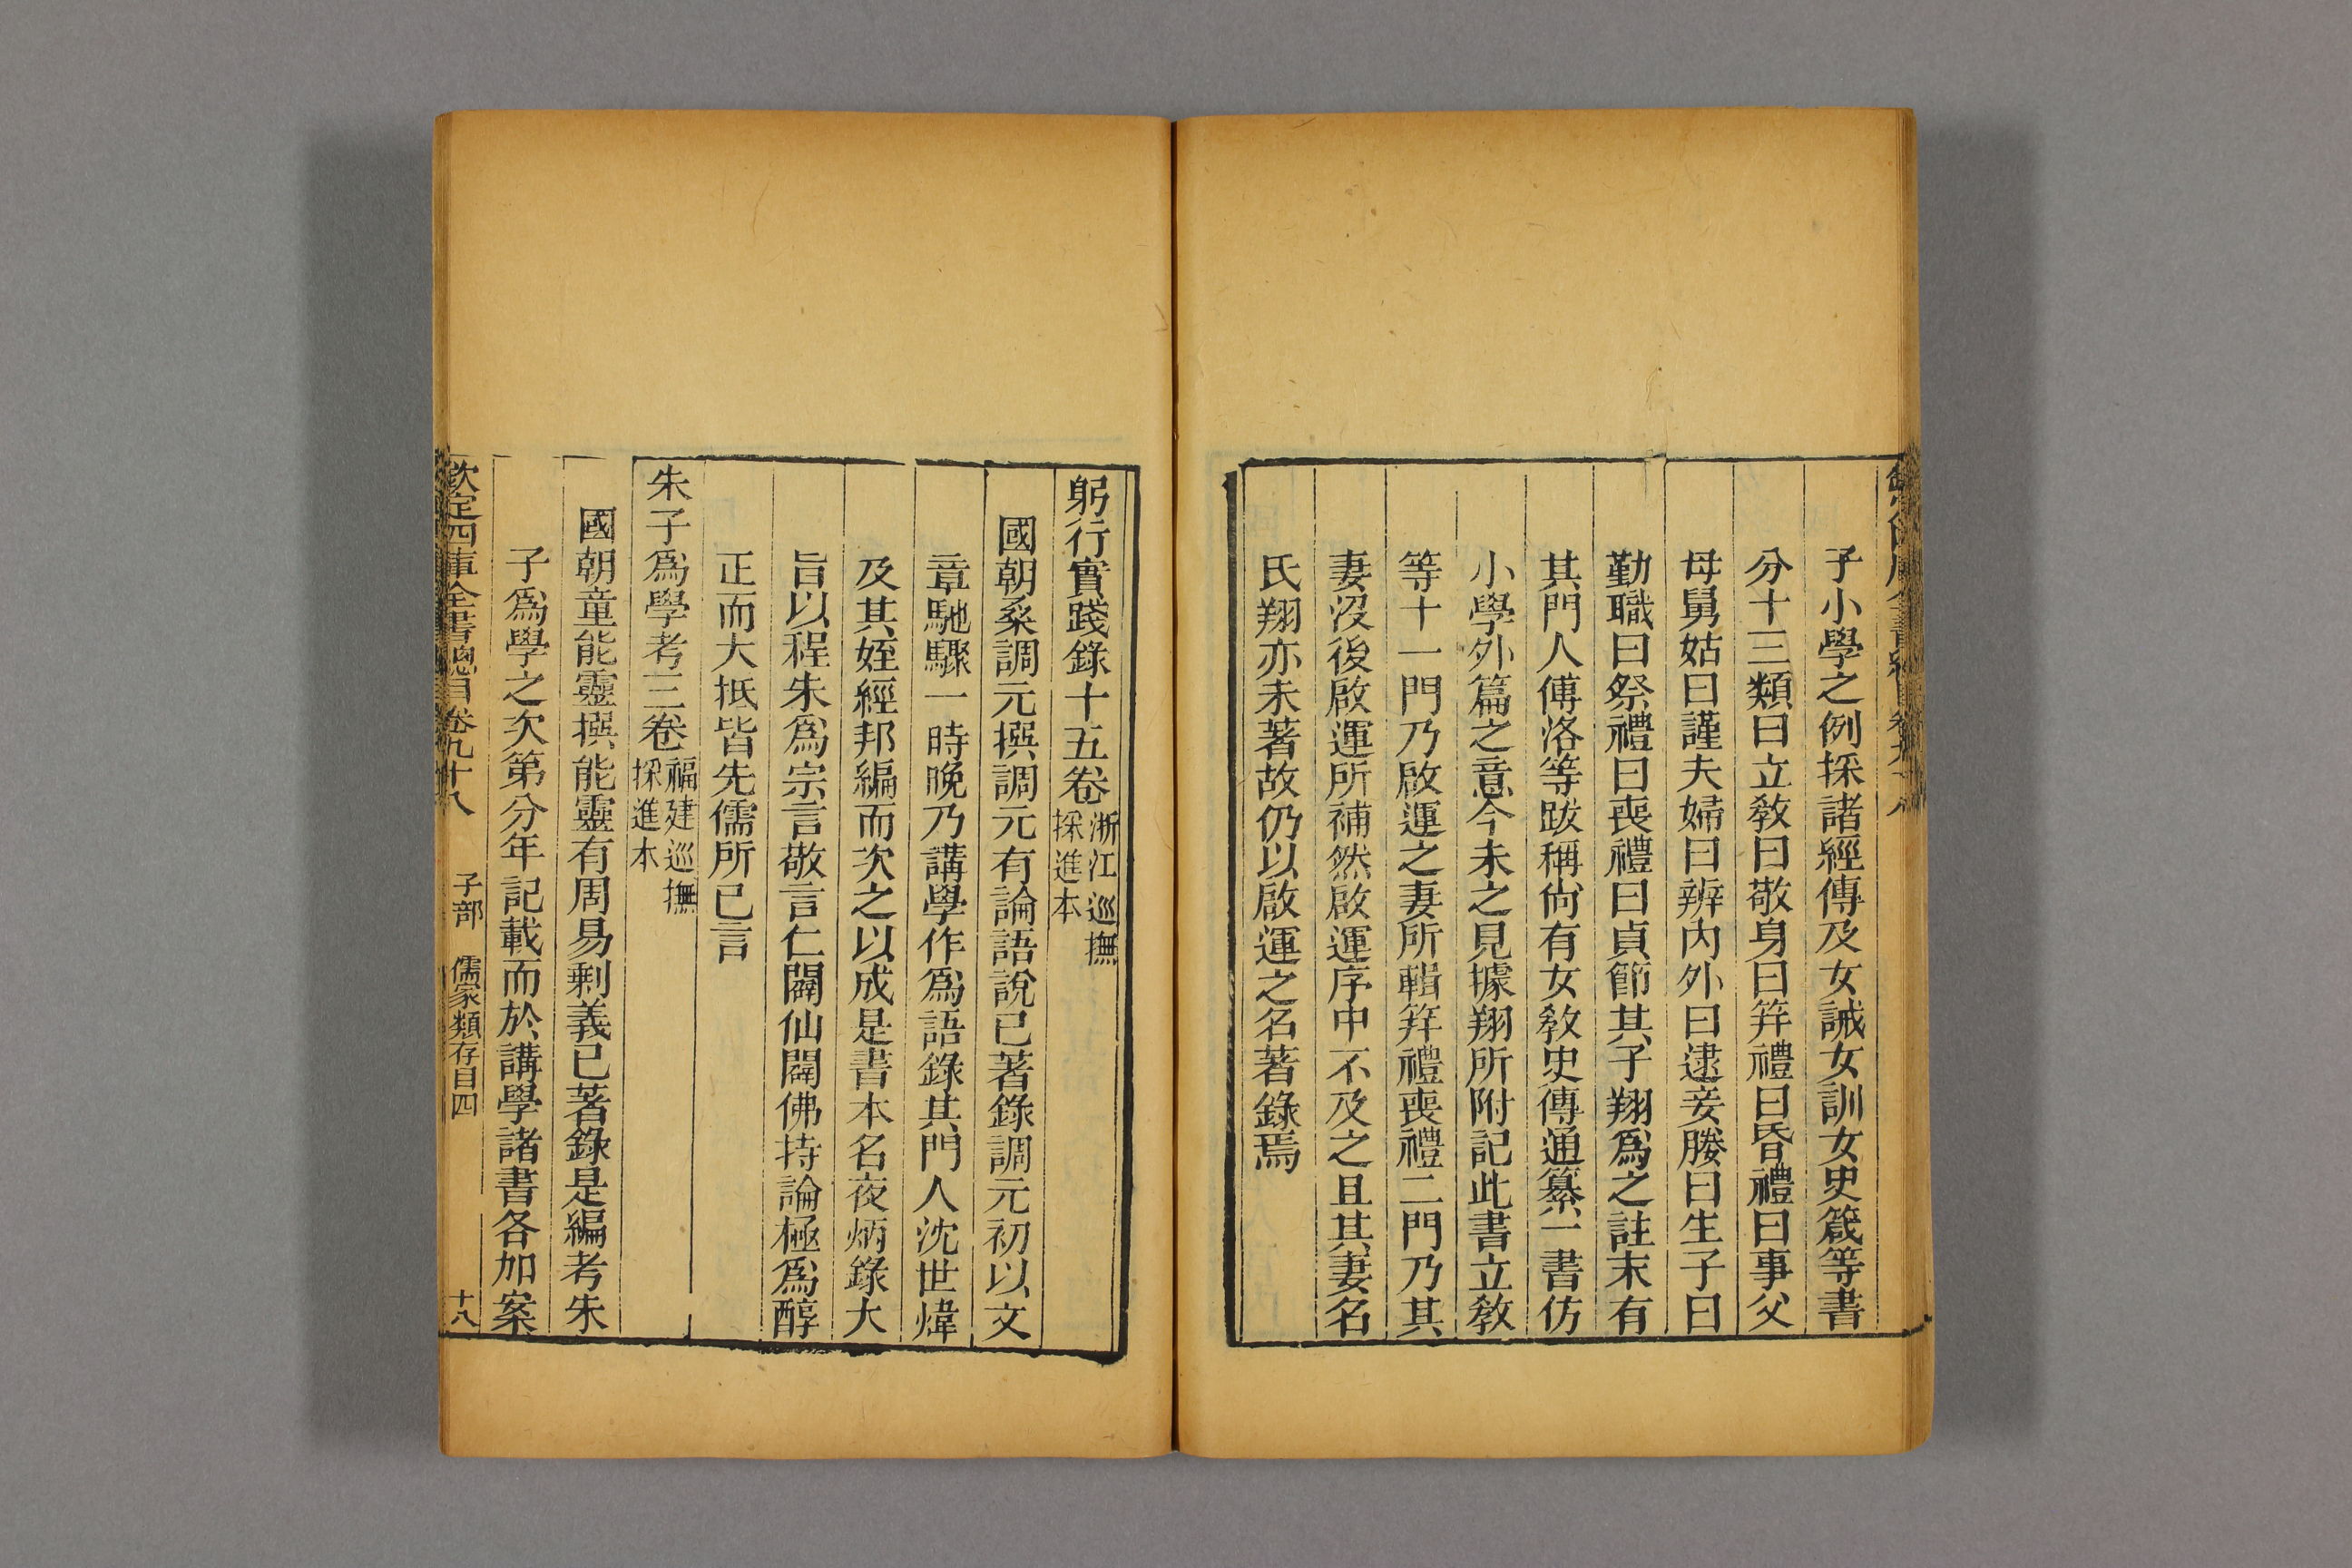 子小學之例採諸經傳及女誡女訓女史箴等書
分十三類曰立教曰敬身曰笄禮曰昏禮曰事父
母舅姑曰謹夫婦曰辨內外曰逮妾媵曰生子曰
勤職曰祭禮曰喪禮曰貞節其子翔爲之註末有
其門人傅洛等跋稱尙有女教史傳通纂一書仿
小學外篇之意今未之見據翔所附記此書立教
等十一門乃啟運之妻所輯笄禮喪禮二門乃其
妻沒後啟運所補然啟運序中不及之且其妻名
氏翔亦未著故仍以啟運之名著錄焉
躬行實踐錄十五卷浙江巡撫採進本
國朝桑調元撰調元有論語說已著錄調元初以文
章馳驟一時晚乃講學作爲語錄其門人沈世煒
及其姪經邦編而次之以成是書本名夜炳錄大
旨以程朱爲宗言敬言仁闢仙闢佛持論極爲醇
正而大抵皆先儒所已言
朱子爲學考三卷福建巡撫採進本
國朝童能靈撰能靈有周易剩義已著錄是編考朱
子爲學之次第分年記載而於講學諸書各加案
欽定四庫全書總目卷九十八 子部 儒家類存目四 十八